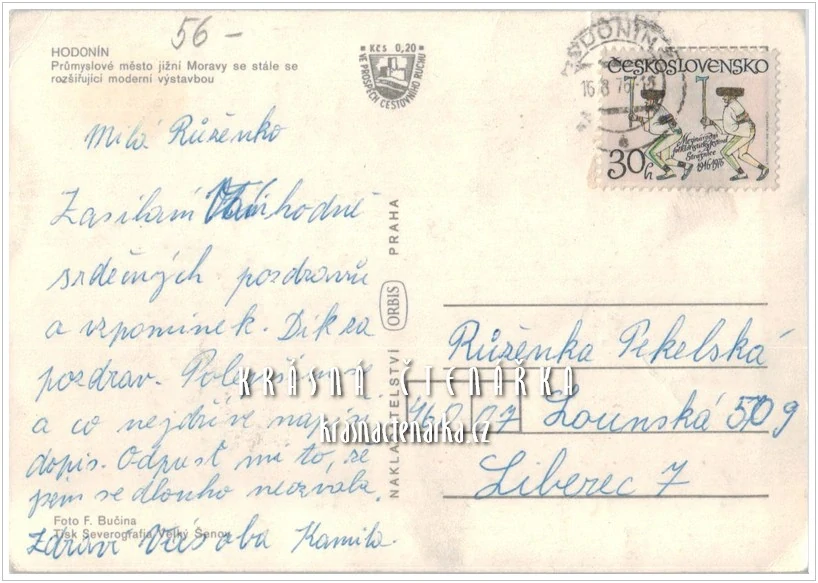 56-
HODONÍN
Průmyslové město jižní Moravy se stále se
rozšiřující moderní výstavbou
Kčs 0,20
VE PROSPĚCH CESTOVNÍHO RUCHU
HODONÍN
15.8.76-15
ČESKOSLOVENSKO
Mezinárodní
folkloristický festival
Strážnice
1946-1976
30h
Milá Růženko
Zasílám Vám hodně
srdečných pozdravů
a vzpomínek. Dík za
pozdrav. Polep
a co nejdříve napíšu
dopis. Odpusť mi to, že
jsem se dlouho neozvala.
Zdraví Vás oba Kamila.
Foto F. Bučina
Tisk Severografia Velký Šenov
NAKLADATELSTVÍ ORBIS PRAHA
Růženka Pekelská
460 07 Lounská 509
Liberec 7
KRÁSNÁ ČTENÁŘKA
krasnactenarka.cz